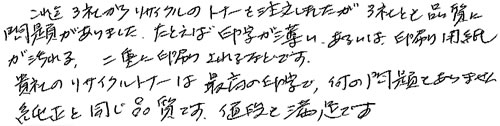 これ迄3社からリサイクルのトナーを注文しましたが3社とも品質に
問題がありました. たとえば印字が薄い. あるいは、印刷用紙
が汚れる, 二重に印刷されるなどです.
貴社のリサイクルトナーは最高の印字で, 何の問題もありません
純正と同じ品質です. 値段も満足です